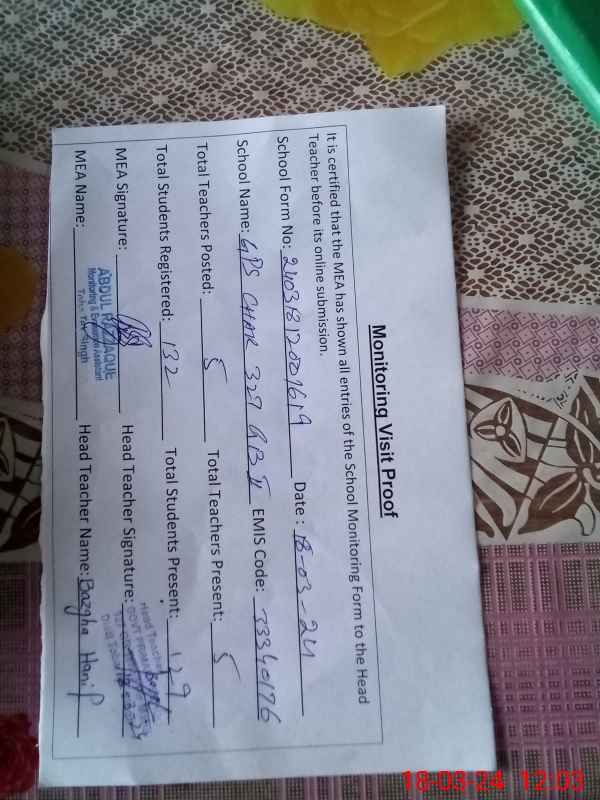 Monitoring Visit Proof
It is certified that the MEA has shown all entries of the School Monitoring Form to the Head
Teacher before its online submission.
School Form No: Date : 18-03-24
School Name: GPS CHAK 327 GB II EMIS Code: 33340176
Total Teachers Posted: 5 Total Teachers Present: 5
Total Students Registered: 132 Total Students Present: 129
MEA Signature: Head Teacher Signature:
Head Teacher
ABDUL RAZZAQUE
Monitoring & Assistant
Toba Tek Singh
MEA Name: Head Teacher Name: Bazgha Hanif
18-03-24 12:03